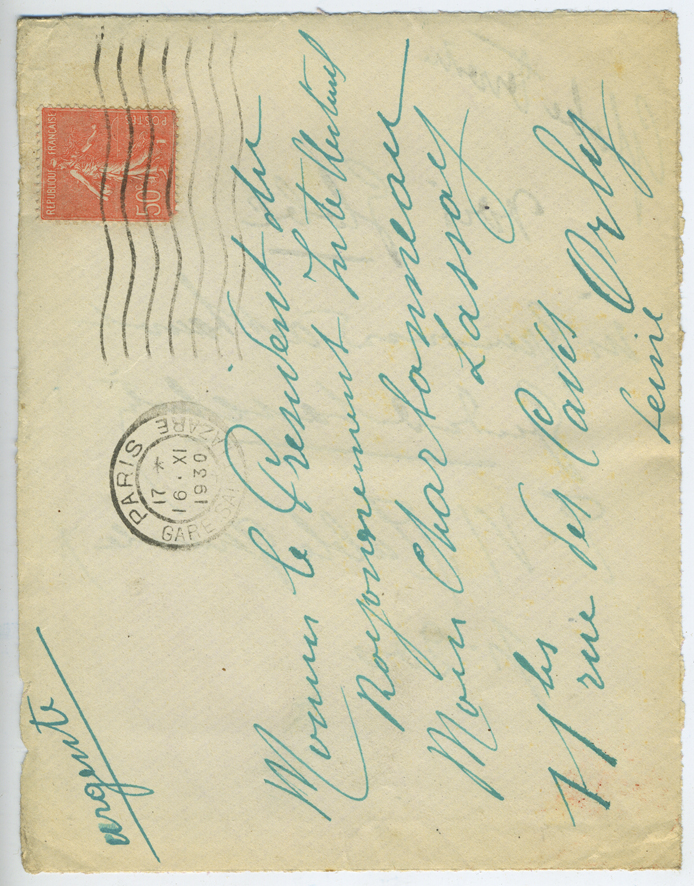 urgente
RÉPUBLIQUE FRANÇAISE
POSTES
50c
PARIS
GARE SAI AZARE
17 *
16 · XI
1930
Monsr le President du
Rayonnement Intellectuel
Monsr Charbonneau
Lassay
11 bis
rue des Caves
Orly
Seine